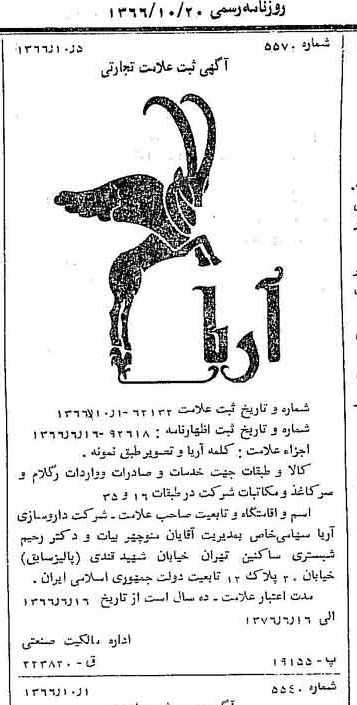 روزنامه رسمی ۱۳۶۶/۱۰/۲۰
شماره ۵۵۷۰ ۱۳۶۶ر۱۰ر۵
آگهی ثبت علامت تجارتی
آریا
شماره و تاریخ ثبت علامت ۶۲۱۳۲-۱ر۱۰ر۱۳۶۶
شماره و تاریخ ثبت اظهارنامه : ۹۲۶۱۸-۱۶ر۶ر۱۳۶۶
اجزاء علامت : کلمه آریا و تصویر طبق نمونه .
کالا و طبقات جهت خدمات و صادرات وواردات رکلام و
سرکاغذ و مکاتبات شرکت در طبقات ۱۶ و ۳۵
اسم و اقامتگاه و تابعیت صاحب علامت - شرکت داروسازی
آریا سهامی خاص بمدیریت آقایان منوچهر بیات و دکتر رحیم
شبستری ساکنین تهران خیابان شهید قندی (پالیزسابق)
خیابان ۲۰ پلاک ۱۲ تابعیت دولت جمهوری اسلامی ایران .
مدت اعتبار علامت - ده سال است از تاریخ ۱۳۶۶ر۶ر۱۶
الی ۱۳۷۶ر۶ر۱۶
اداره مالکیت صنعتی
پ - ۱۹۱۵۵ ق - ۲۲۳۸۲۰
شماره ۵۵۴۰ ۱۳۶۶ر۱۰ر۱